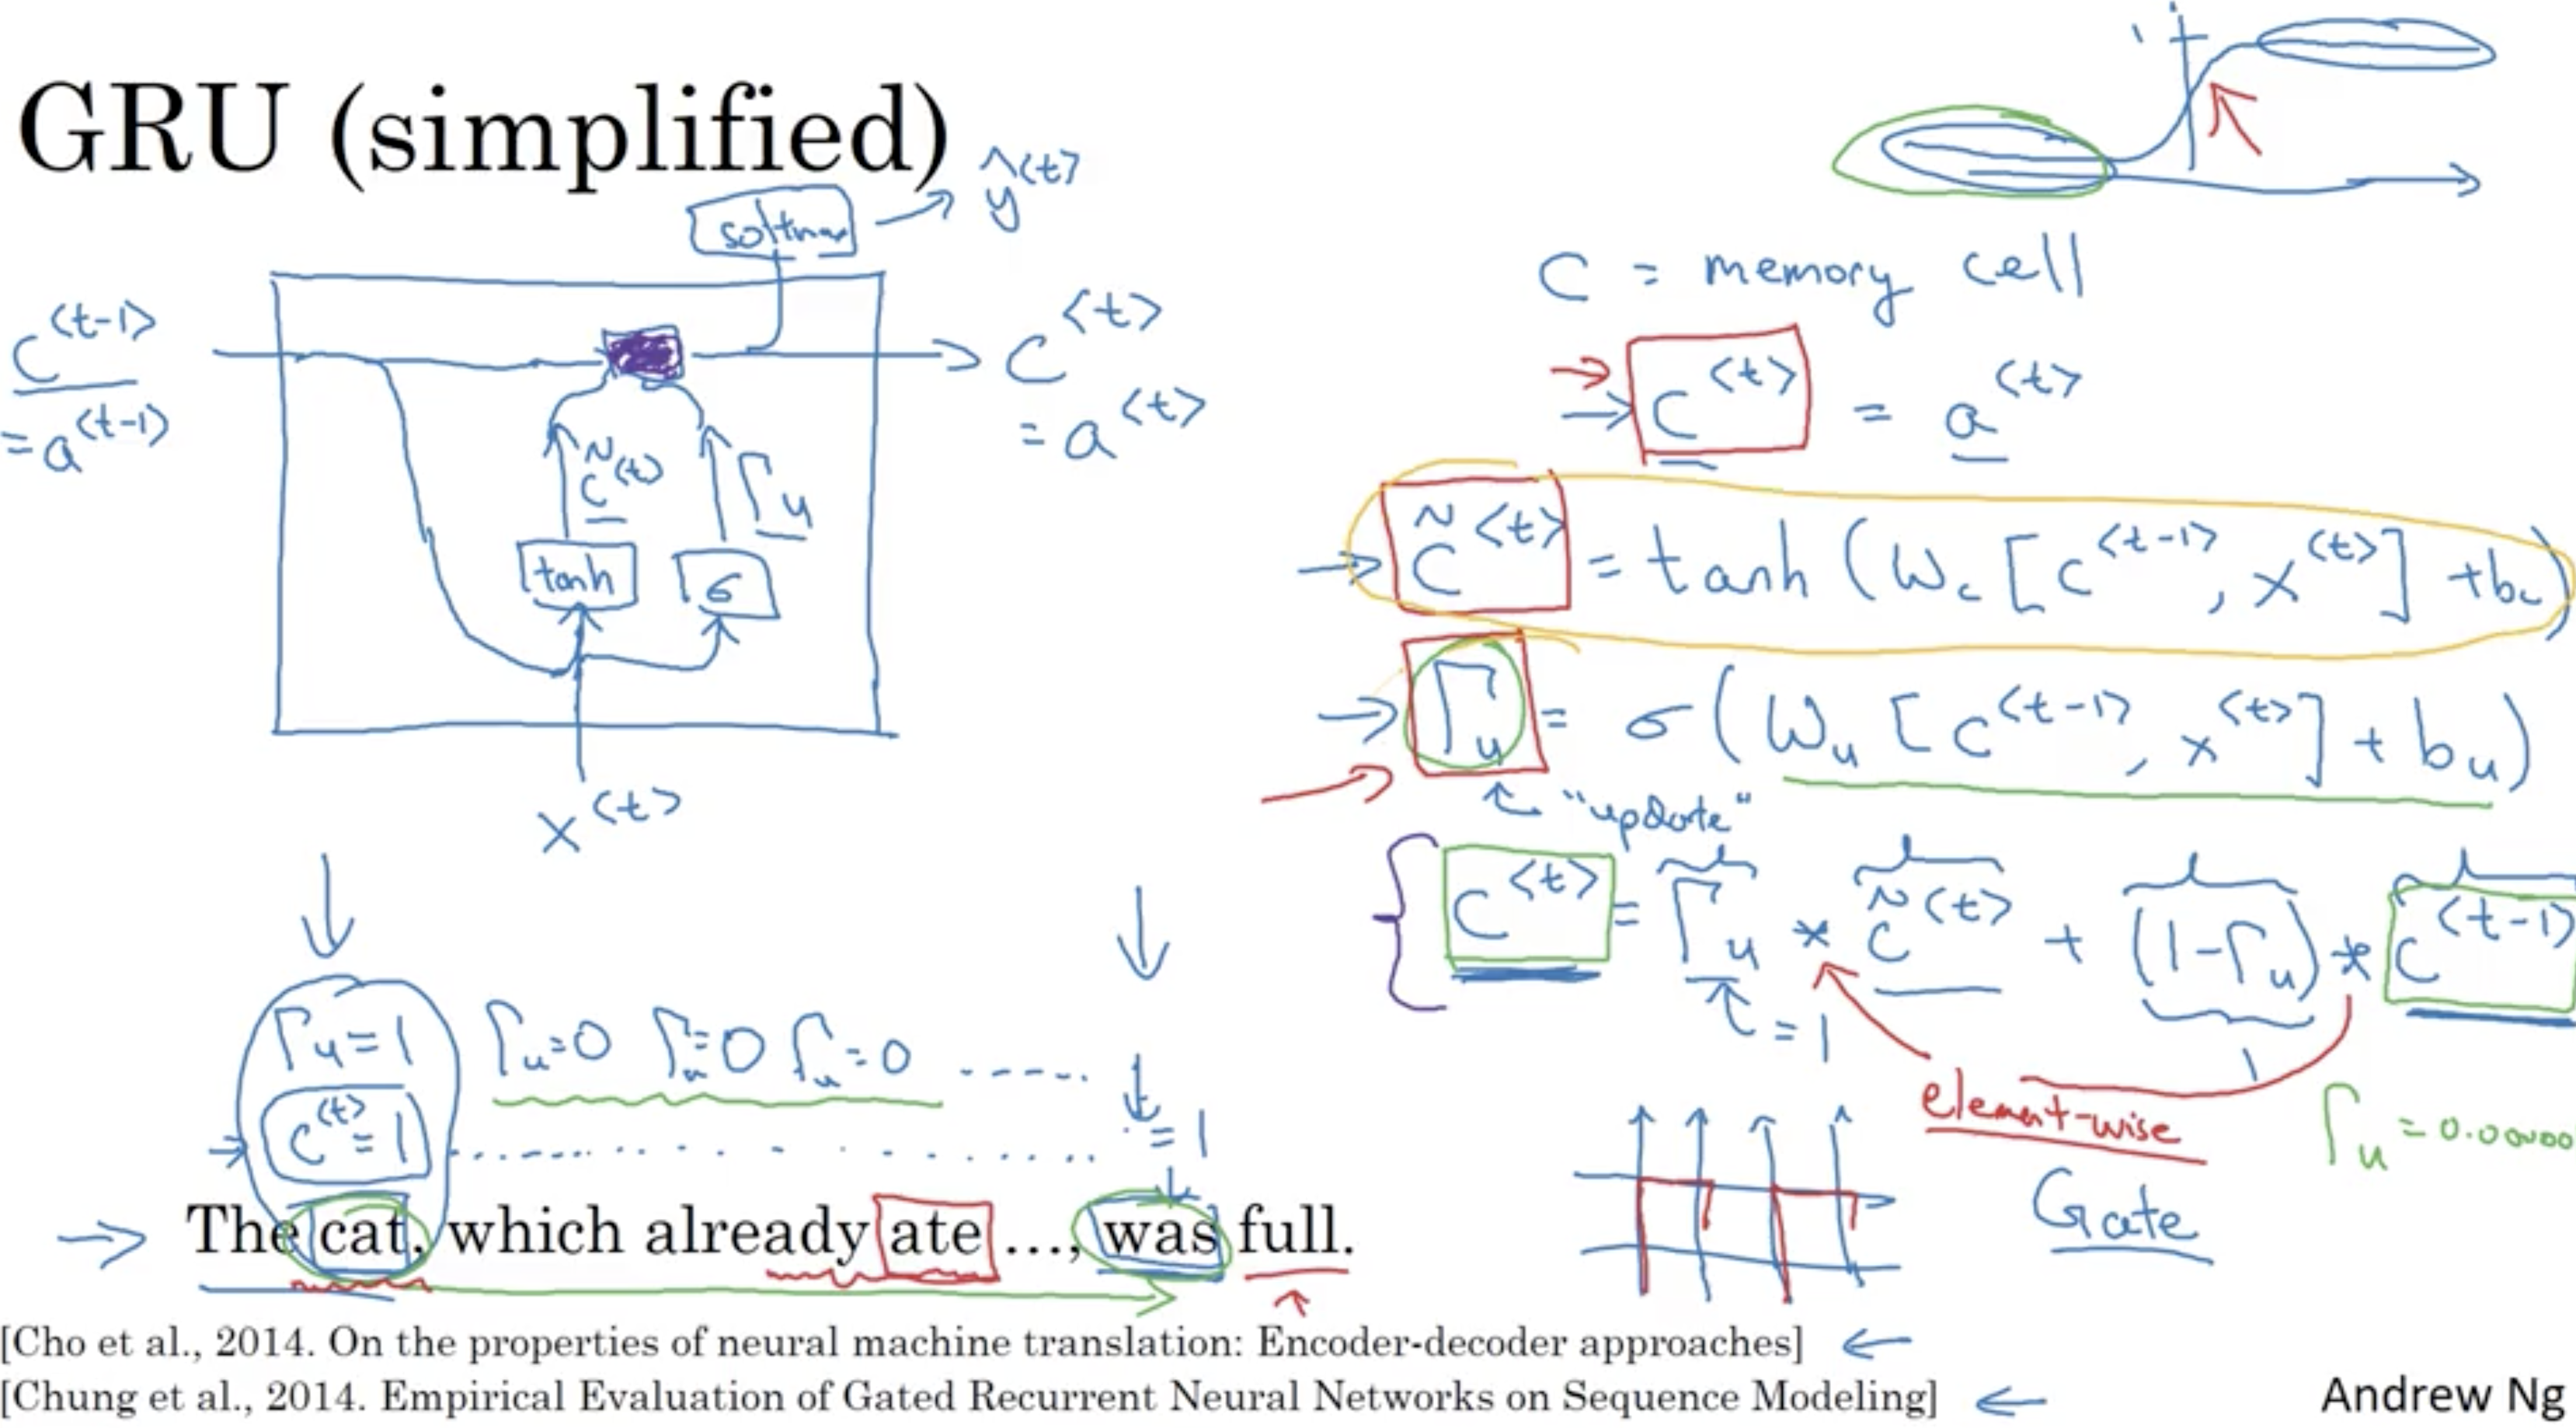 GRU (simplified)
softmax → ŷ<t>
c<t-1> = a<t-1>
c<t> = a<t>
c̃<t>
Γu
tanh
σ
x<t>
C = memory cell
c<t> = a<t>
c̃<t> = tanh(Wc[c<t-1>, x<t>] + bc)
Γu = σ(Wu[c<t-1>, x<t>] + bu)
"update"
c<t> = Γu * c̃<t> + (1-Γu) * c<t-1>
= 1
element-wise
Γu = 0.00000
Gate
Γu=1 Γu=0 Γu=0 Γu=0 .....
c<t>=1 ..... =1
The cat, which already ate ..., was full.
[Cho et al., 2014. On the properties of neural machine translation: Encoder-decoder approaches] ←
[Chung et al., 2014. Empirical Evaluation of Gated Recurrent Neural Networks on Sequence Modeling] ←
Andrew Ng